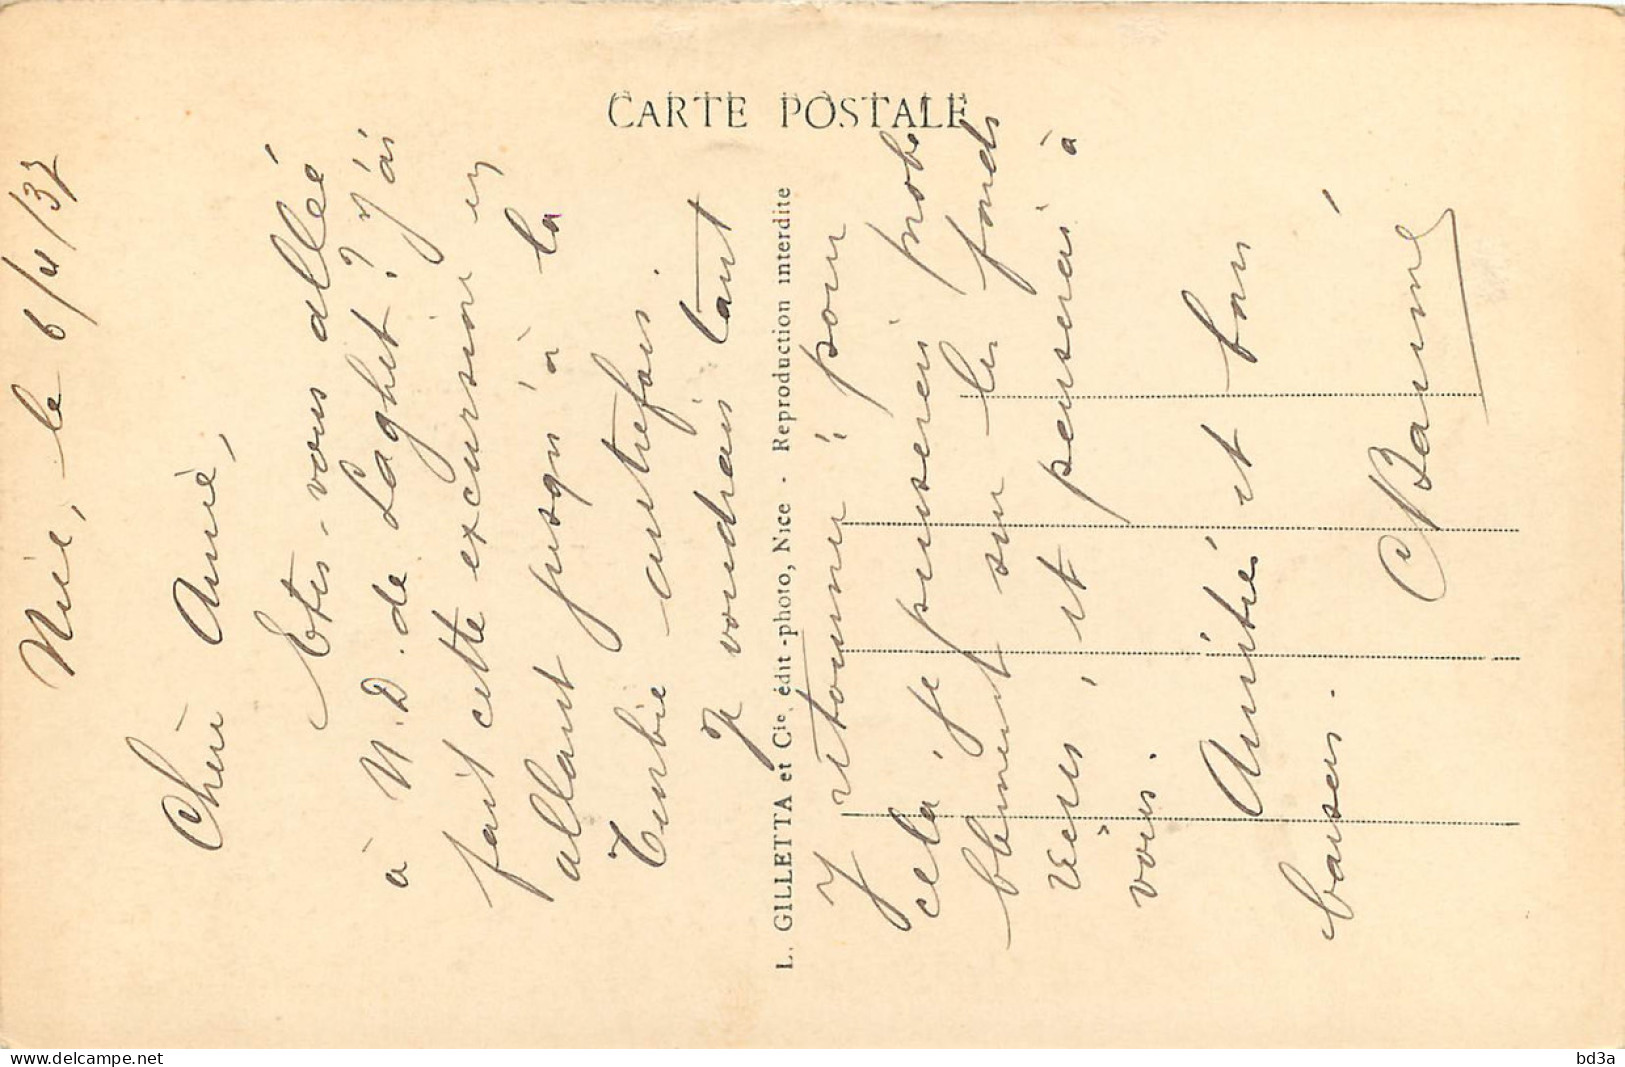 CARTE POSTALE
Nice, le 6/4/37
Chère Amie,
Etes-vous allée
à N.D. de Laghet ? J'ai
fait cette excursion en
allant jusqu'à la
Turbie autrefois.
Je voudrais tant
L. GILLETTA et Cie édit-photo, Nice - Reproduction interdite
Y retourner ; pour
cela je puiserais proba
blement sur les fonds
et penserais à
vous.
Amitiés et bons
baisers.
delcampe.net
bd3a